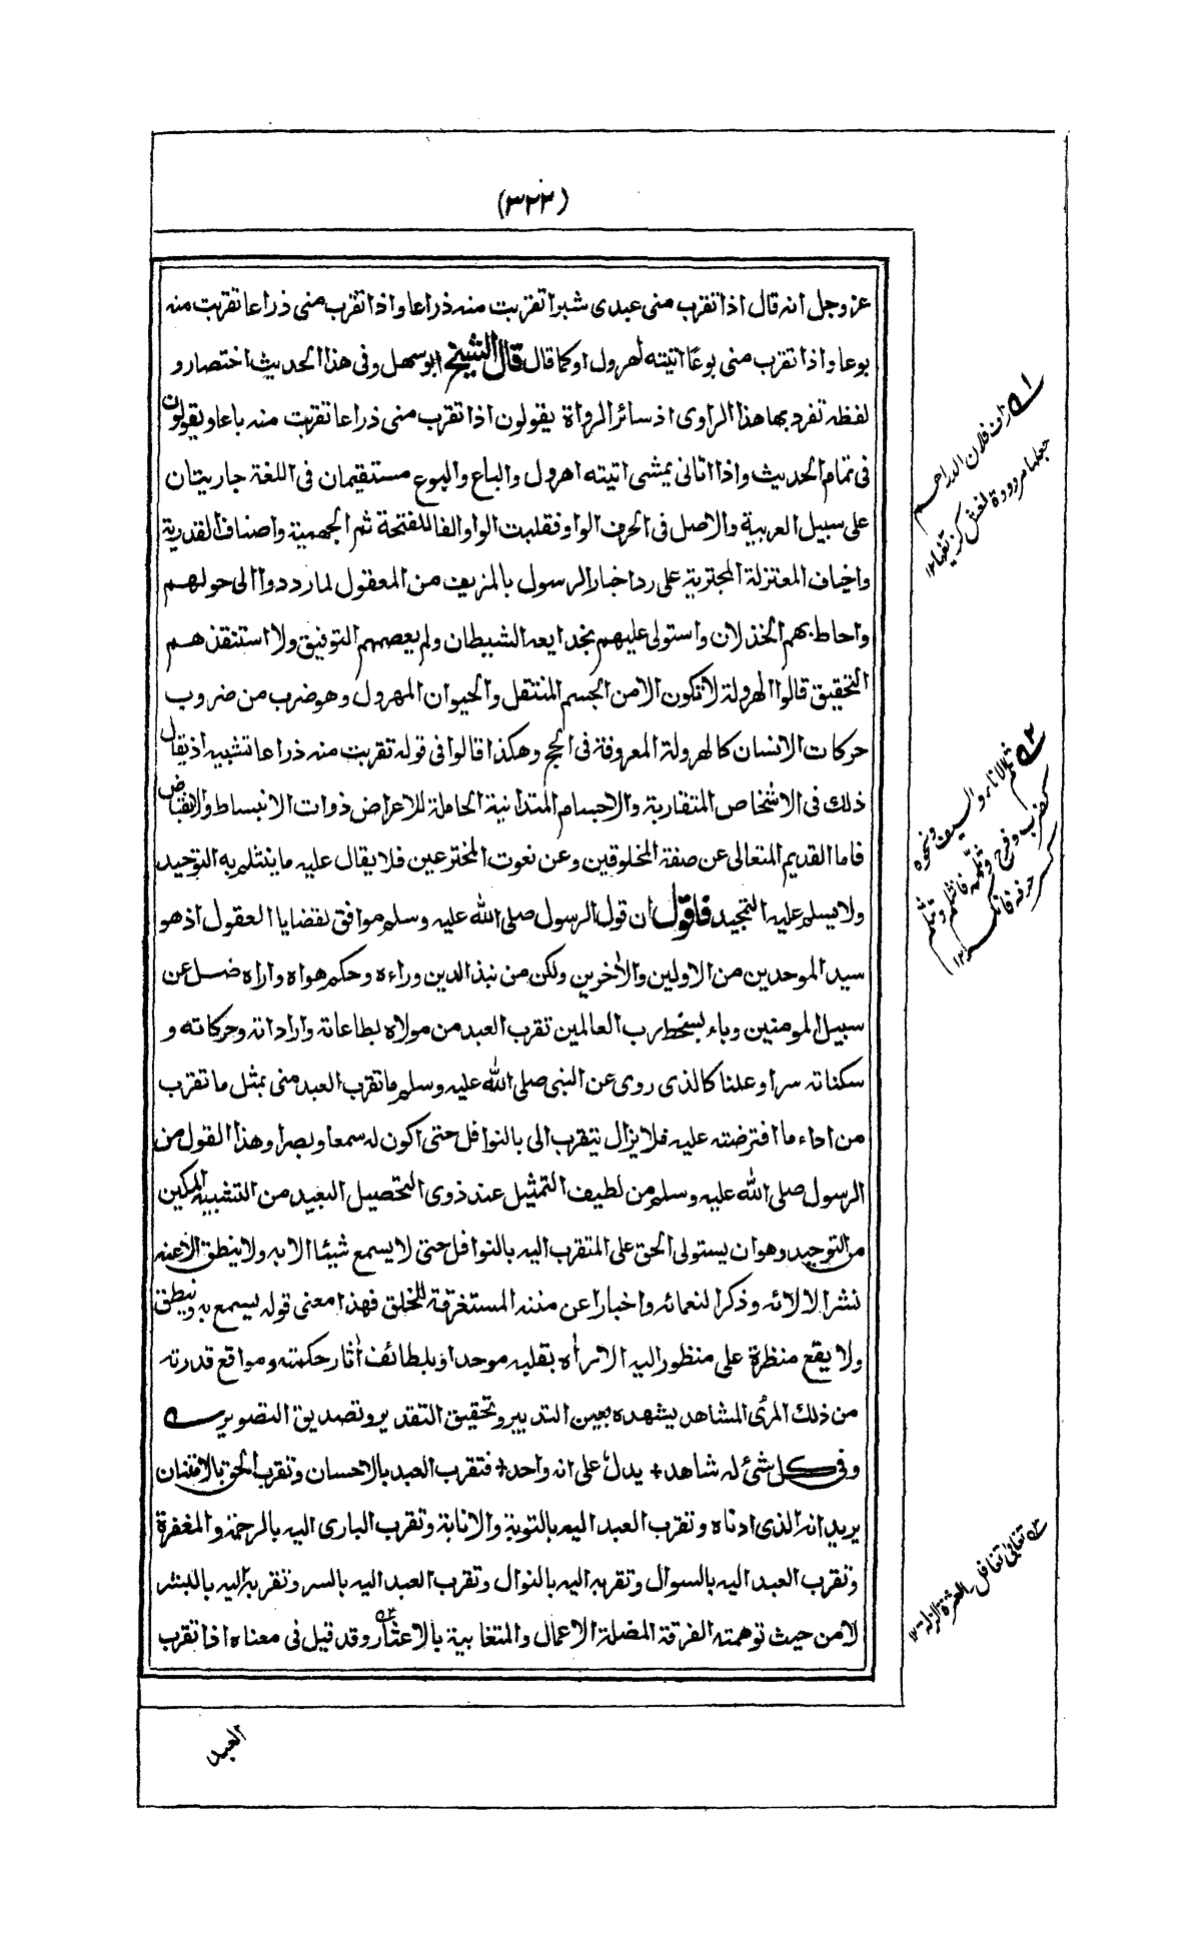 (٣٢٣)
عز وجل انه قال اذا تقرب منى عبدى شبرا تقربت منه ذراعا واذا تقرب منى ذراعا تقربت منه
بوعا واذا تقرب منى بوعًا اتيته اهرول او كما قال قال الشيخ ابو سهل وفى هذا الحديث اختصار و
لفظه تفرد بها هذا الراوى اذ سائر الرواة يقولون اذا تقرب منى ذراعا تقربت منه باعا ويقولون
فى تمام الحديث واذا اتانى يمشى اتيته اهرول والباع والبوع مستقيمان فى اللغة جاريتان
على سبيل العربية والاصل فى الحرف الواو فقلبت الواو الفا للفتحة ثم الجهمية واصناف القدرية
واخياف المعتزلة المجترية على رد اخبار الرسول بالمزيف من المعقول لما رددوا الى حولهم
واحاط بهم الخذلان واستولى عليهم بخدايعه الشيطان ولم يعصمهم التوفيق ولا استنقذهم
التحقيق قالوا الهرولة لا تكون الا من الجسم المنتقل والحيوان المهرول وهو ضرب من ضروب
حركات الانسان كالهرولة المعروفة فى الحج وهكذا قالوا فى قوله تقربت منه ذراعا تشبيه اذ يقال
ذلك فى الاشخاص المتقاربة والاجسام المتدانية الحاملة للاعراض ذوات الانبساط والانقباض
فاما القديم المتعالى عن صفة المخلوقين وعن نعوت المخترعين فلا يقال عليه ما ينثلم به التوحيد
ولا يسلم عليه التمجيد فاقول ان قول الرسول صلى الله عليه وسلم موافق لقضايا العقول اذ هو
سيد الموحدين من الاولين والآخرين ولكن من نبذ الدين وراءه وحكم هواه واراه ضل عن
سبيل المومنين وباء بسخط رب العالمين تقرب العبد من مولاه بطاعاته واراداته وحركاته و
سكناته سرا وعلنا كالذى روى عن النبى صلى الله عليه وسلم ما تقرب العبد منى بمثل ما تقرب
من اداء ما افترضته عليه فلا يزال يتقرب الى بالنوافل حتى اكون له سمعا وبصرا وهذا القول من
الرسول صلى الله عليه وسلم من لطيف التمثيل عند ذوى التحصيل البعيد من التشبيه المكين
من التوحيد وهو ان يستولى الحق على المتقرب اليه بالنوافل حتى لا يسمع شيئا الا به ولا ينطق الا عنه
نشرا لالائه وذكرا لنعمائه واخبارا عن مننه المستغرقة للخلق فهذا معنى قوله يسمع به وينطق
ولا يقع منظرة على منظور اليه الا رأه بقلبه موحدا وبلطائف أثار حكمته ومواقع قدرته
من ذلك المرئ المشاهد يشهده بعين التدبير وتحقيق التقدير وتصديق التصوير
وفى كل شئ له شاهد + يدل على انه واحد + فتقرب العبد بالاحسان وتقرب الحق بالامتنان
يريد انه الذى ادناه وتقرب العبد اليه بالتوبة والانابة وتقرب البارى اليه بالرحمة والمغفرة
وتقرب العبد اليه بالسوال وتقربه اليه بالنوال وتقرب العبد اليه بالسر وتقربه اليه بالبشر
لا من حيث توهمته الفرقة المضلة الاعمال والمتغابية بالاعثار وقد قيل فى معناه اذا تقرب
العبد
فلان الدراهم
جعلها مردودة لغش
ثلم الاناء والسيف ونحوه
كضرب وفرح وثلّمه فانثلم وتثلم
كسر حرفه فانكسر ١٢
تغابى تغافل العثرة الزلة ١٢